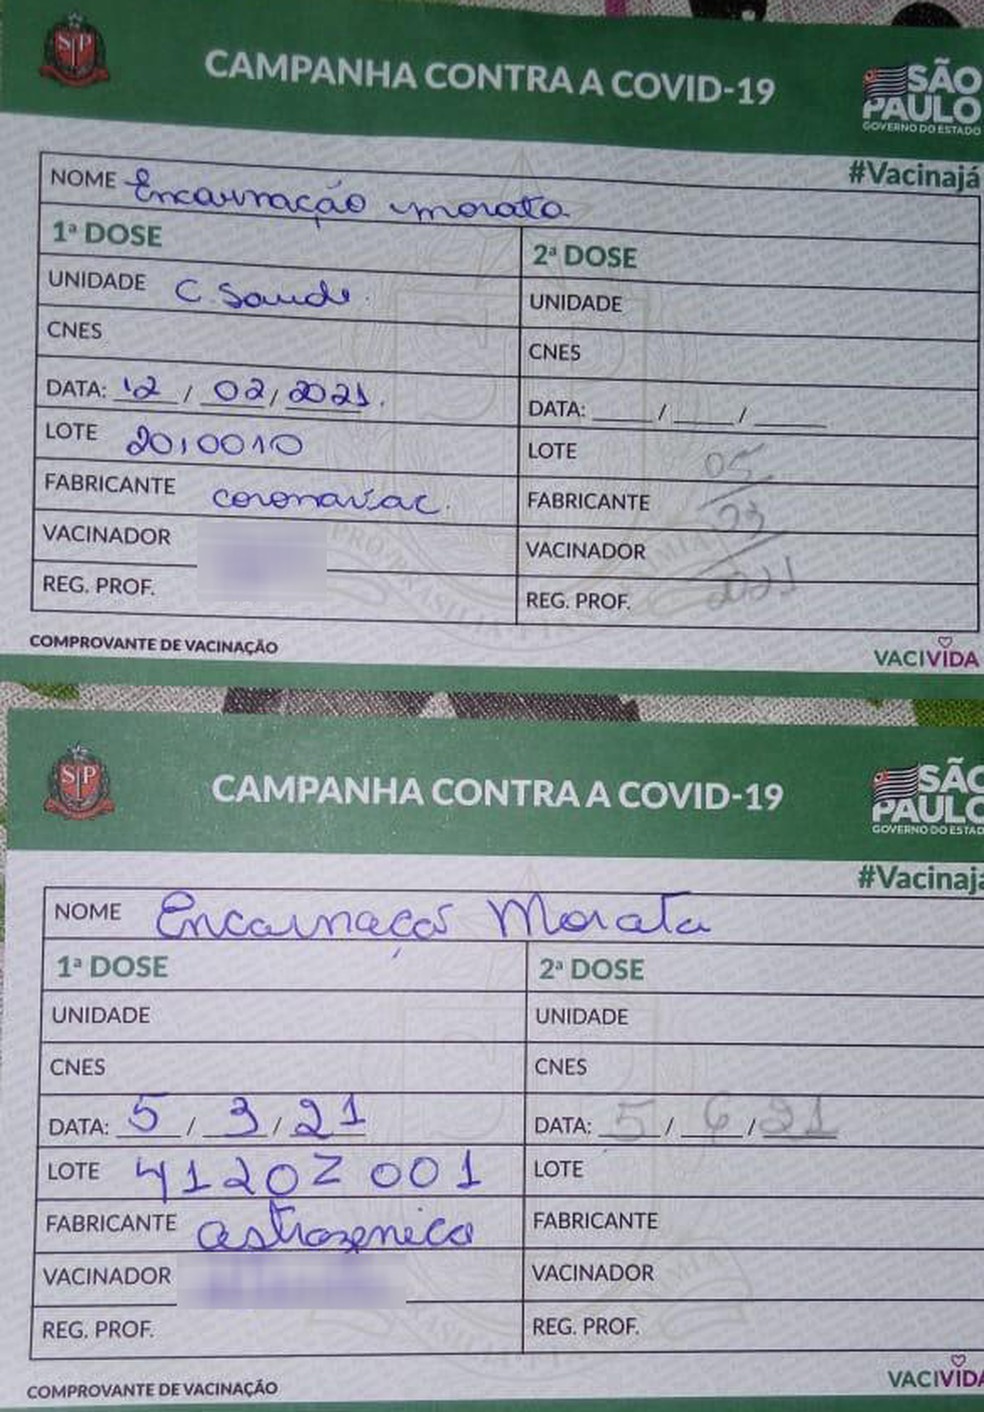 SP
CAMPANHA CONTRA A COVID-19
SÃO
PAULO
GOVERNO DO ESTADO
#Vacinajá
NOME Encarnação morata
1ª DOSE
2ª DOSE
UNIDADE C. Saude.
UNIDADE
CNES
CNES
DATA: 12 / 02 / 2021.
DATA: ____ / ____ / ____
LOTE 2010010
LOTE
05
FABRICANTE coronavac.
FABRICANTE
03
VACINADOR
VACINADOR
2021
REG. PROF.
REG. PROF.
COMPROVANTE DE VACINAÇÃO
VACIVIDA
SP
CAMPANHA CONTRA A COVID-19
SÃO
PAULO
GOVERNO DO ESTAD
#Vacinaj
NOME Encarnaçaõ Morata
1ª DOSE
2ª DOSE
UNIDADE
UNIDADE
CNES
CNES
DATA: 5 / 3 / 21
DATA: 5 / 6 / 21
LOTE 4120Z001
LOTE
FABRICANTE astrozenica
FABRICANTE
VACINADOR
VACINADOR
REG. PROF.
REG. PROF.
COMPROVANTE DE VACINAÇÃO
VACIVIDA